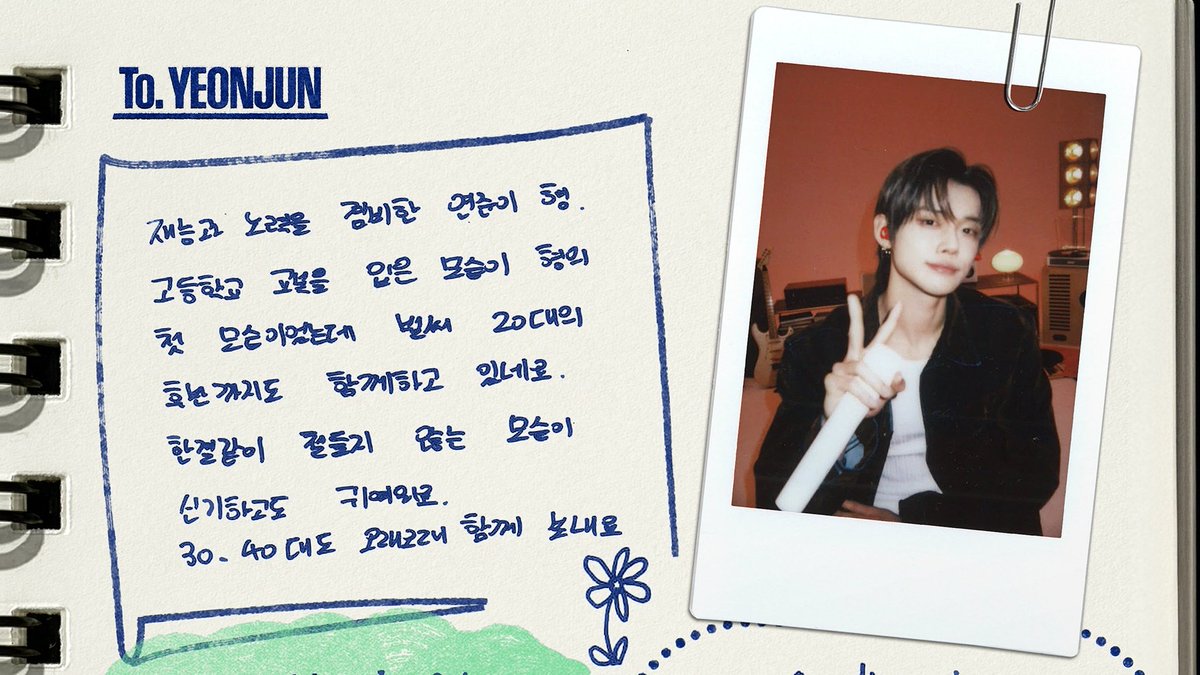 To. YEONJUN
재능과 노력을 겸비한 연준이 형.
고등학교 교복을 입은 모습이 형의
첫 모습이었는데 벌써 20대의
후반까지도 함께하고 있네요.
한결같이 철들지 않는 모습이
신기하고도 귀여워요.
30. 40대도 오래오래 함께 노내요